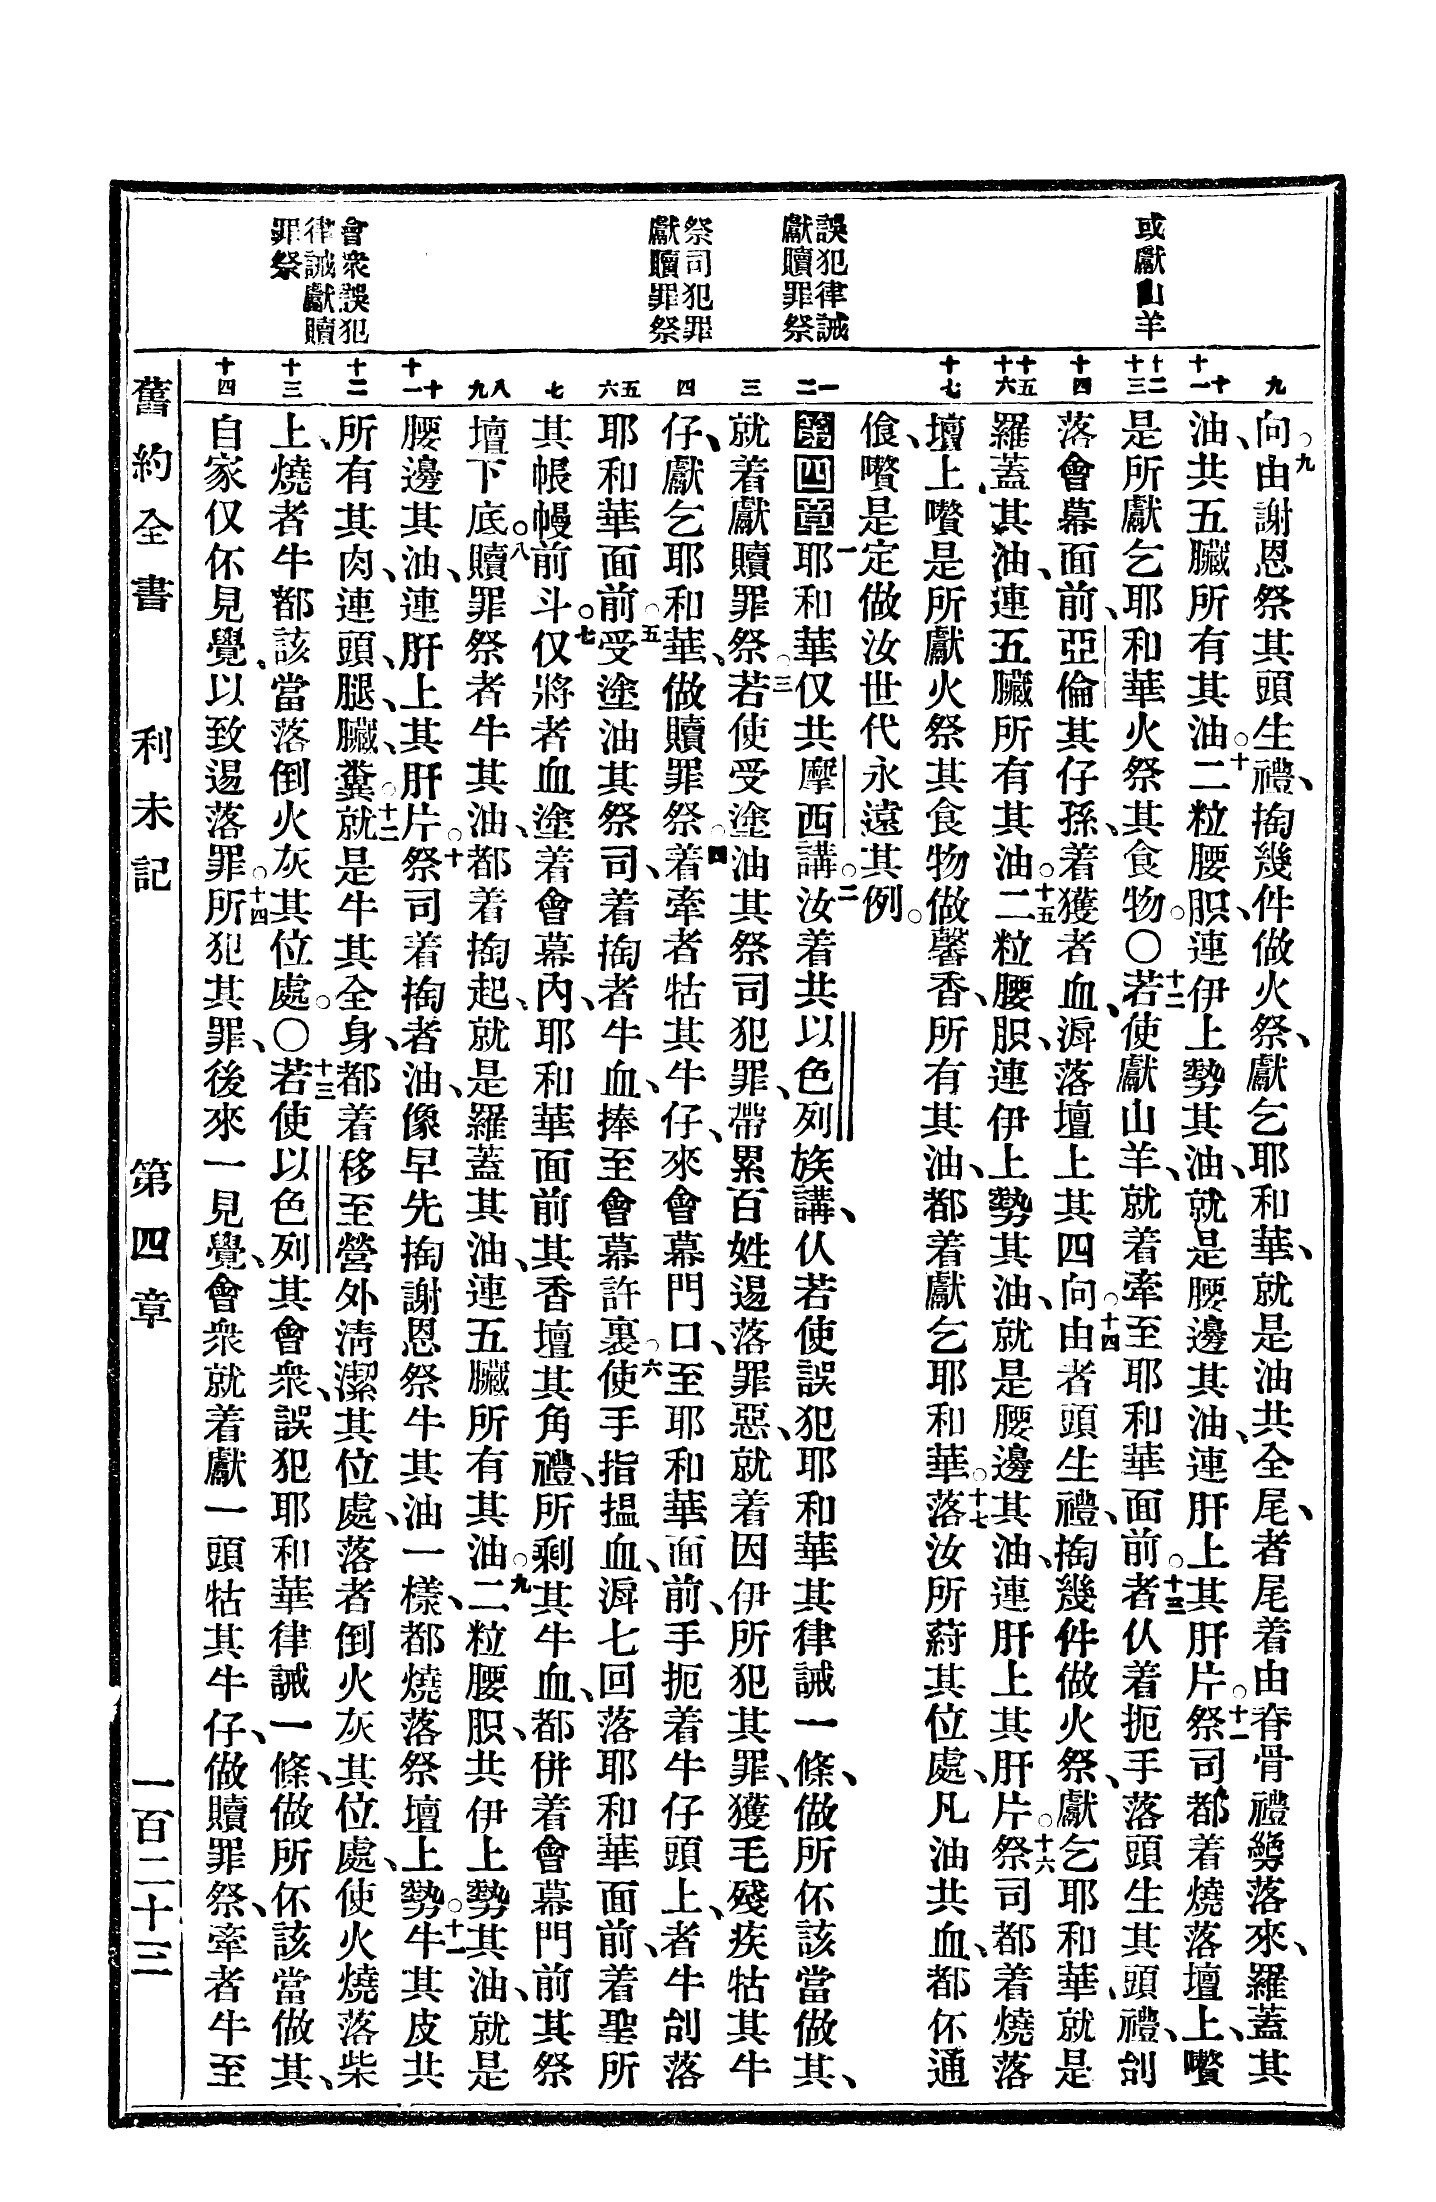 或獻山羊
誤犯律誡
獻贖罪祭
祭司犯罪
獻贖罪祭
會衆誤犯
律誡獻贖
罪祭
九
十 十一
十二 十三
十四
十五 十六
十七
一 二
三
四
五 六
七
八 九
十 十一
十二
十三
十四
向。九由謝恩祭其頭生禮、掏幾件做火祭、獻乞耶和華、就是油共全尾、者尾着由脊骨禮落來、羅蓋其
油、共五臟所有其油。十二粒腰䏰、連伊上勢其油、就是腰邊其油、連肝上其肝片。十一祭司都着燒落壇上、嚽
是所獻乞耶和華火祭、其食物。〇十二若使獻山羊、就着牽至耶和華面前。十三者仈着扼手落頭生其頭禮、刣
落會幕面前、亞倫其仔孫、着獲者血、滒落壇上其四向。十四由者頭生禮、掏幾件做火祭、獻乞耶和華、就是
羅蓋其油、連五臟所有其油。十五二粒腰䏰、連伊上勢其油、就是腰邊其油、連肝上其肝片。十六祭司都着燒落
壇上、嚽是所獻火祭其食物做馨香、所有其油、都着獻乞耶和華。十七落汝所蒔其位處、凡油共血、都伓通
飡、嚽是定做汝世代永遠其例。
第四章一耶和華仅共摩西講。二汝着共以色列族講、仈若使誤犯耶和華其律誡一條、做所伓該當做其、
就着獻贖罪祭。三若使受塗油其祭司犯罪、帶累百姓逿落罪惡、就着因伊所犯其罪、獲毛殘疾牯其牛
仔、獻乞耶和華、做贖罪祭。四着牽者牯其牛仔、來會幕門口、至耶和華面前、手扼着牛仔頭上、者牛刣落
耶和華面前。五受塗油其祭司、着掏者牛血、捧至會幕許裏。六使手指搵血、滒七回落耶和華面前、着聖所
其帳幔前斗。七仅將者血、塗着會幕內、耶和華面前其香壇其角禮、所剩其牛血、都併着會幕門前、其祭
壇下底。八贖罪祭者牛其油、都着掏起、就是羅蓋其油、連五臟所有其油。九二粒腰䏰、共伊上勢其油、就是
腰邊其油、連肝上其肝片。十祭司着掏者油、像早先掏謝恩祭牛其油一樣、都燒落祭壇上勢。十一牛其皮共
所有其肉、連頭、腿、臟、糞。十二就是牛其全身、都着移至營外淸潔其位處、落者倒火灰其位處、使火燒落柴
上、燒者牛都該當落倒火灰其位處。〇十三若使以色列其會衆、誤犯耶和華律誡一條、做所伓該當做其、
自家仅伓見覺、以致逿落罪。十四所犯其罪、後來一見覺、會衆就着獻一頭牯其牛仔、做贖罪祭、牽者牛至
舊約全書　利未記　第四章　一百二十三